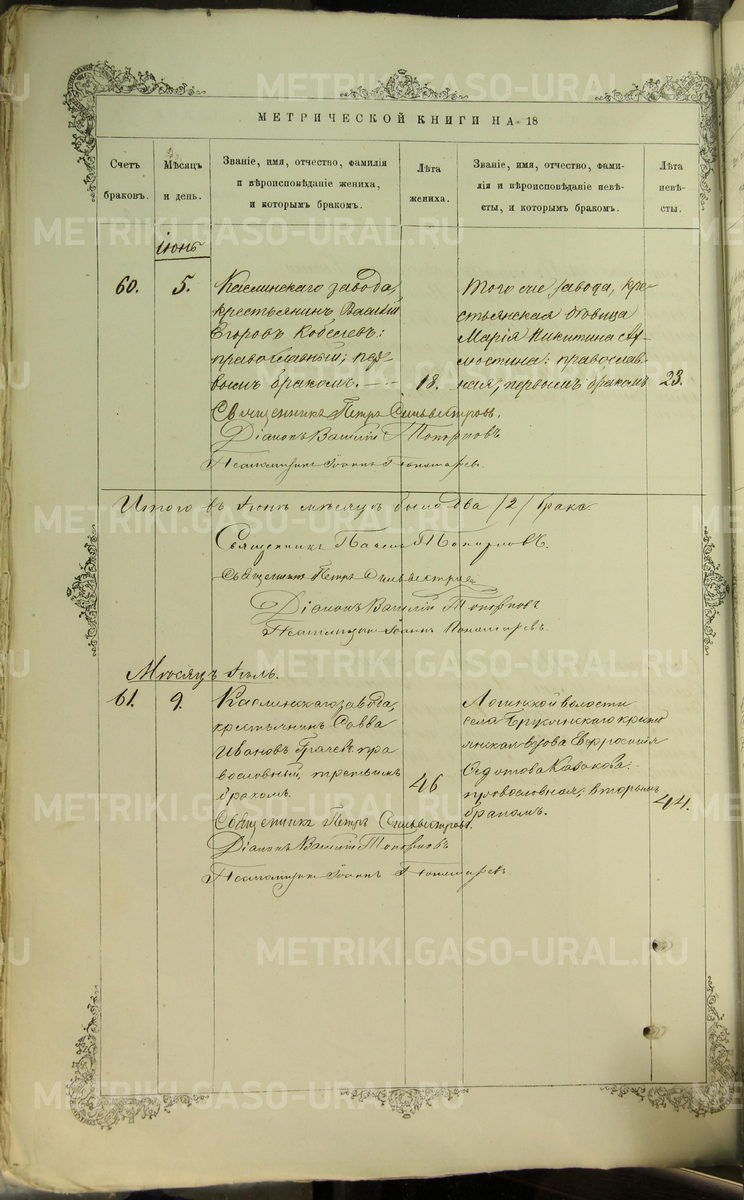 МЕТРИЧЕСКОЙ КНИГИ НА 18
Счетъ браковъ.
Мѣсяцъ и день.
Званіе, имя, отчество, фамилія
и вѣроисповѣданіе жениха,
и которымъ бракомъ.
Лѣта жениха.
Званіе, имя, отчество, фами-
лія и вѣроисповѣданіе невѣ-
сты, и которымъ бракомъ.
Лѣта невѣ-
сты.
Іюнь
60.
5.
Каслинскаго завода,
крестьянинъ Василій
Егоровъ
православный; пер-
вымъ бракомъ.
18.
Того же завода, кре-
стьянская дѣвица
Марія Никитина
православ-
ная, первымъ бракомъ
23.
Священникъ Петръ Сильвестровъ.
Діаконъ Василій Топорковъ
Псаломщикъ Іоаннъ Пономаревъ.
Итого въ Іюнѣ мѣсяцѣ было два /2/ брака.
Священникъ
Священникъ Петръ Сильвестровъ
Діаконъ Василій Топорковъ
Псаломщикъ Іоаннъ Пономаревъ.
Мѣсяцъ Іюль.
61.
9.
Каслинскаго завода,
крестьянинъ Савва
Ивановъ Грачевъ пра
вославный, третьимъ
бракомъ.
46
волости
села крестья
янская вдова Евфросинія
Федотова Казакова:
православная; вторымъ
бракомъ.
44.
Священникъ Петръ Сильвестровъ.
Діаконъ Василій Топорковъ
Псаломщикъ Іоаннъ Пономаревъ
METRIKI.GASO-URAL.RU